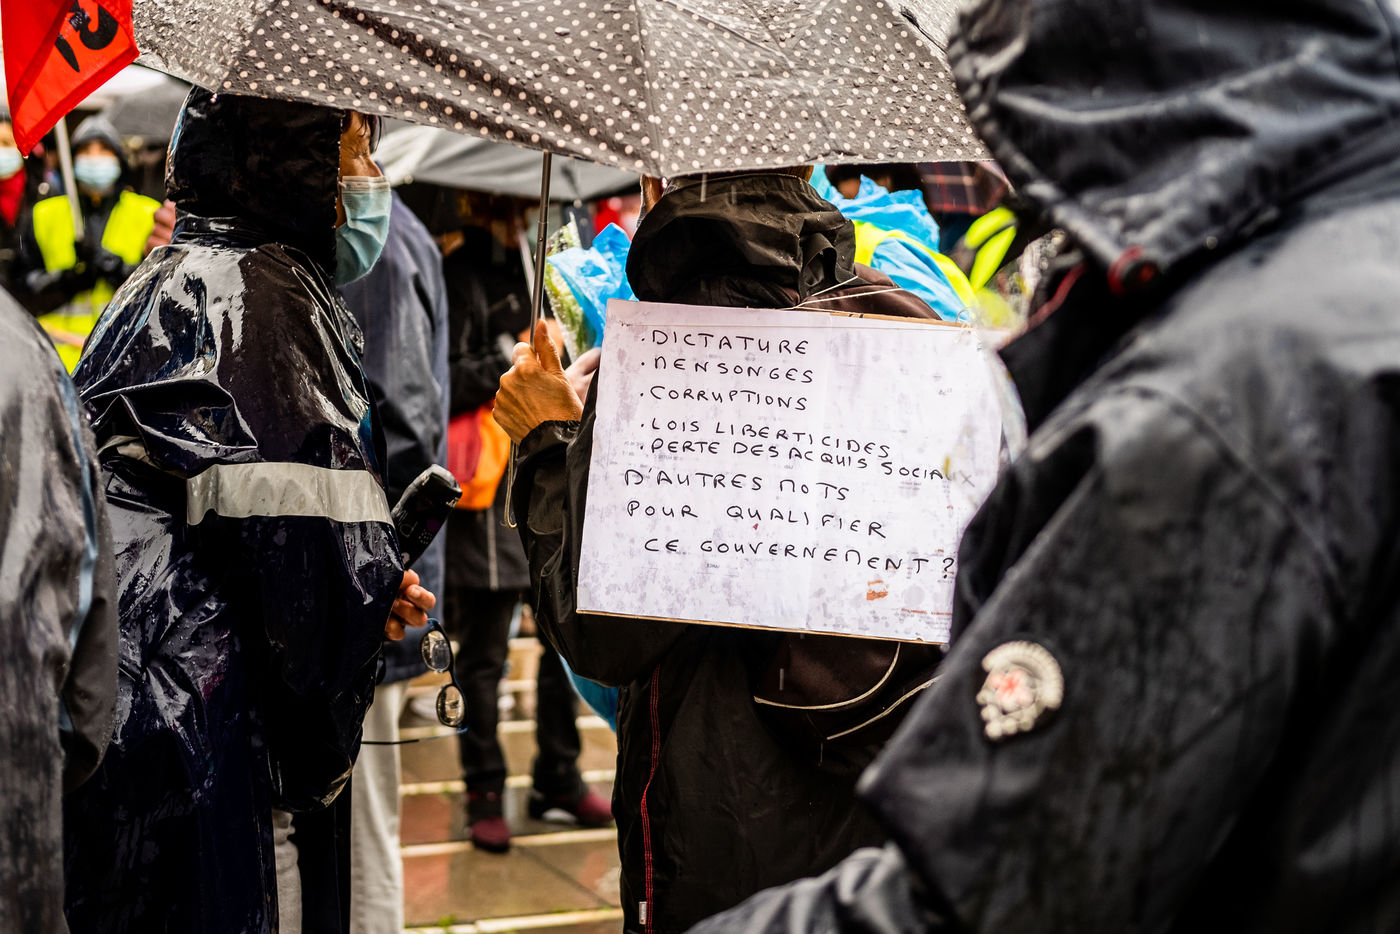 . DICTATURE
. MENSONGES
. CORRUPTIONS
. LOIS LIBERTICIDES
. PERTE DES ACQUIS SOCIAUX
D'AUTRES MOTS
POUR QUALIFIER
CE GOUVERNEMENT ?